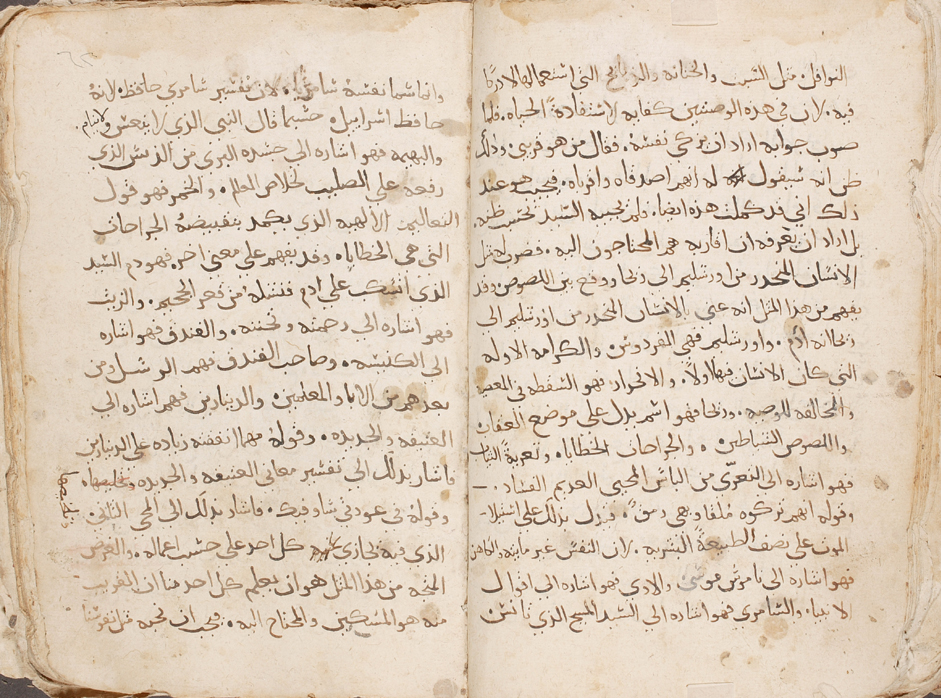 النوافل مثل السبب والختانه التي استعمالها لادركا
فيه. لان في هذه الوصيتين كفايه لاستفادة الحياه. فلما
صوب جوابه اراد ان يزكي نفسه. فقال من هو قريبي. وذلك
ظن انه سيقول له انهم اصدقاه واقرباه. فيجيب هو عند
ذلك اني قد كملت هذه ايضا. فلم يجيبه السيد بحسب ظنه
بل اراد ان يعرفه ان اقاربه هم المحتاجون اليه. فضرب له مثل
الانسان المنحدر من اورشليم الى ريحا ووقع بين اللصوص وقد
يفهم من هذا المثل انه عني بالانسان المنحدر من اورشليم الى
ريحا انه آدم. واورشليم فهي الفردوس والكرامه الاوله
التي كان الانسان فيها اولاً. والانحدار فهو السقطه في المعصيه
والمخالفه للوصيه. وريحا فهو اسم يدل على موضع العقاب
واللصوص الشياطين. والجراحات الخطايا. وتعرية الثياب
فهو اشاره الى التعري من الباس المحيي العديم الفساد.
وقوله انهم تركوه ملقا وبه رمق. فيدل بذلك على استيلا
الموت على نصف الطبيعه البشريه. لان النفس غير مايته والكاهن
فهو اشاره الى ناموس موسى والاوي فهو اشاره الي اقوال
لانبيا. والسامري فهو اشاره الي السيد المسيح الذي تانس
وانما سما نفسه سامري. لان تفسير سامري حافظ. لانه
حافظ اسراييل. حسبما قال النبي الذي لا ينعس ولا ينام.
والبهيمه فهو اشاره الي جسده البري من الدنس الذي
رفعه علي الصليب لخلاص العالم. والخمر فهو قول
التعاليم الالهيه الذي يضمد بتقبيضهُ الجراحات
التي هي الخطايا. وقد يفهم علي معني اخر. فهو دم السيد
الذي انسكب علي ادم فنشله من قعر الجحيم. والزيت
فهو اشاره الي رحمته وتحننه. والفندق فهو اشاره
الي الكنيسه. وصاحب الفندق فهم الرسل ومن
بعدهم من الابا والمعلمين. والدينارين فهم اشاره الي
العتيقه والحديده. وقوله مهما انفقته زياده علي الدينارين
فاشار بذلك الي تفسير معاني العتيقه والحديده
وقوله في عودتي نساوفيك. فاشار بذلك الى المجي الثاني.
الذي فيه يجازي كل احد علي حسب اعماله. والغرض
المتجه من هذا المثل هو ان يعلم كل احد منا ان القريب
منه هو المسكين والمحتاج اليه. فيجب ان نحبه مثل نفوسنا